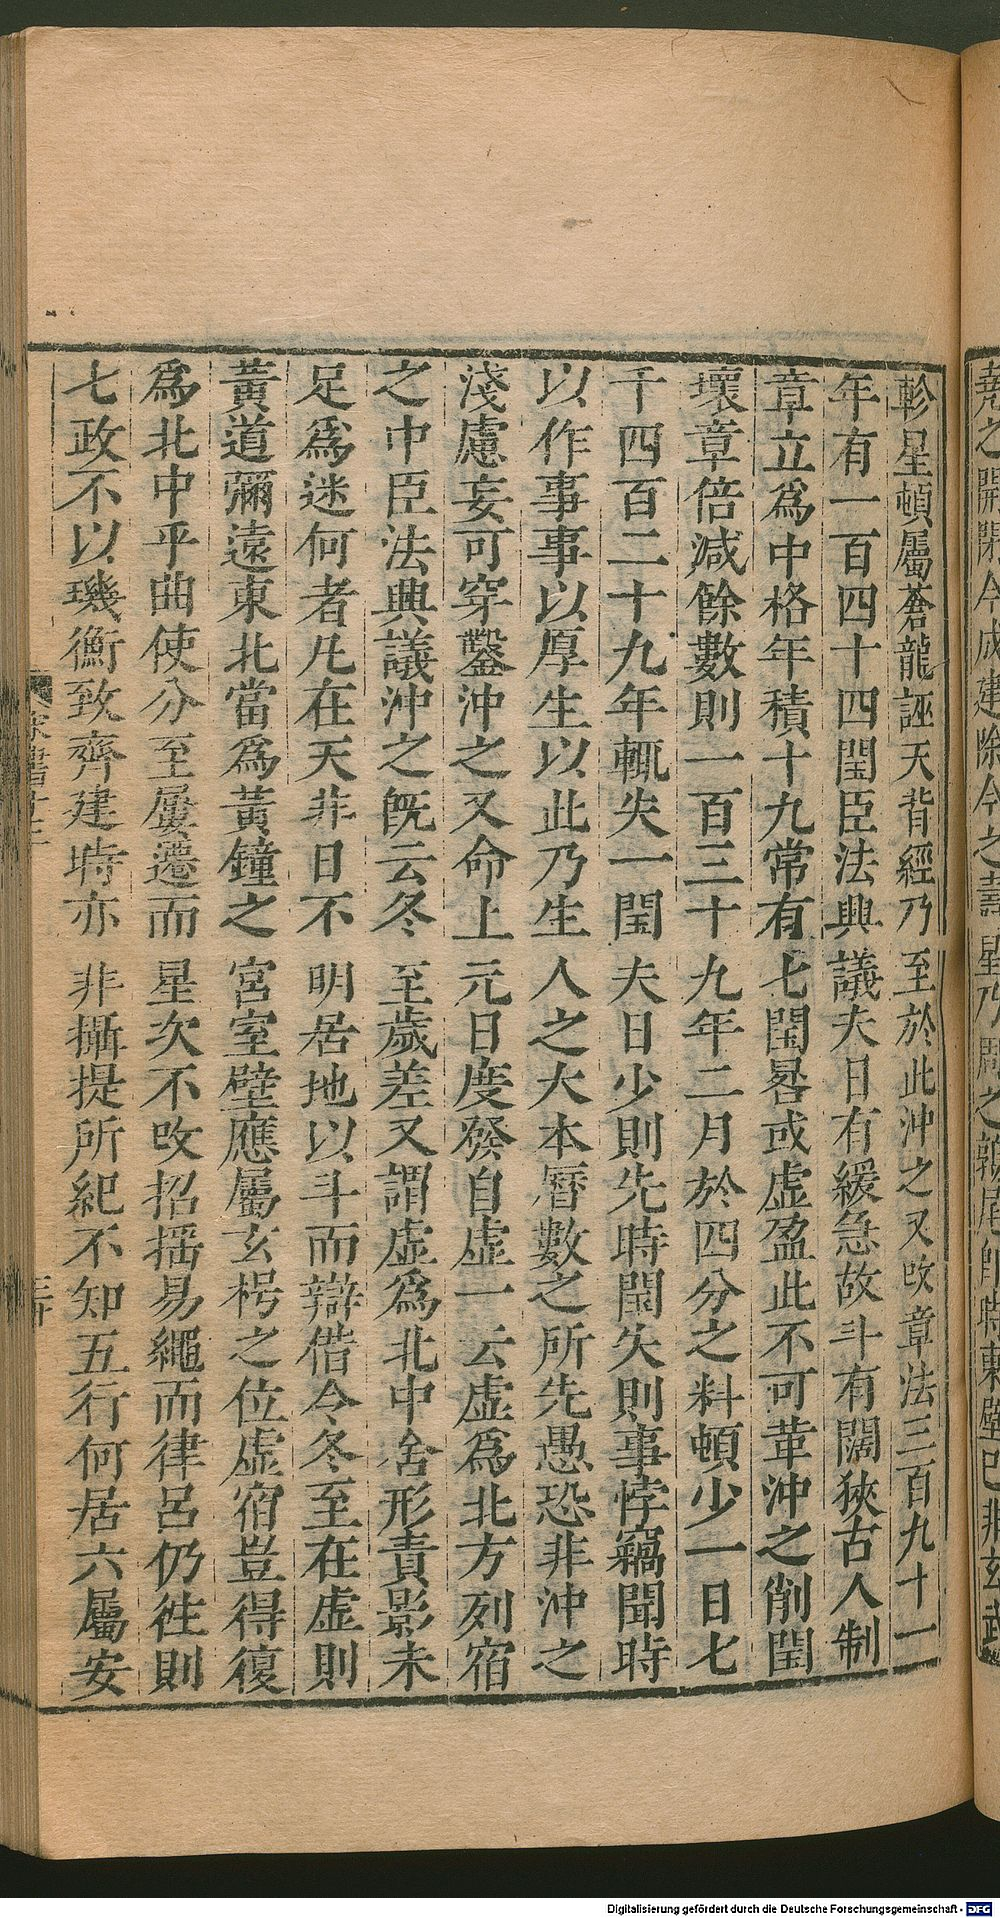 軫星頓屬蒼龍誣天背經乃至於此沖之又改章法三百九十一
年有一百四十四閏臣法興議夫日有緩急故斗有闊狹古人制
章立爲中格年積十九常有七閏晷或虛盈此不可革沖之削閏
壞章倍減餘數則一百三十九年二月於四分之科頓少一日七
千四百二十九年輒失一閏夫日少則先時閏失則事悖竊聞時
以作事事以厚生以此乃生人之大本曆數之所先愚恐非沖之
淺慮妄可穿鑿沖之又命上元日度發自虛一云虛爲北方列宿
之中臣法興議沖之旣云冬至歲差又謂虛爲北中舍形責影未
足爲迷何者凡在天非日不明居地以斗而辯借今冬至在虛則
黃道彌遠東北當爲黃鐘之宮室壁應屬玄枵之位虛宿豈得復
爲北中乎曲使分至屢遷而星次不改招搖易繩而律呂仍往則
七政不以璣衡致齊建時亦非攝提所紀不知五行何居六屬安
Digitalisierung gefördert durch die Deutsche Forschungsgemeinschaft - DFG